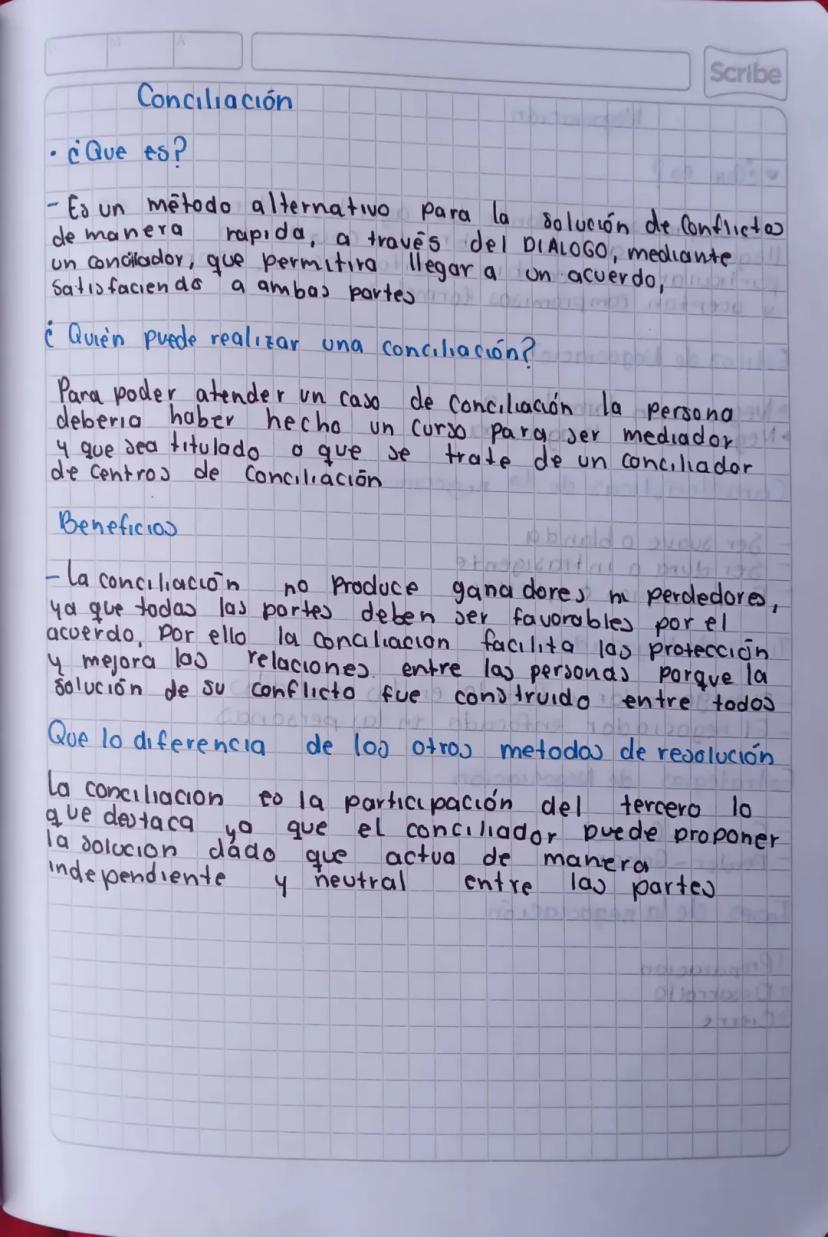 Scribe
Conciliación
• ¿Que es?
- Es un método alternativo para la solución de conflictos
de manera rapida, a través del DIALOGO, mediante
un conciliador, que permitira llegar a un acuerdo,
satisfaciendo a ambas partes
¿Quién puede realizar una conciliación?
Para poder atender un caso de conciliación la persona
deberia haber hecho un curso para ser mediador
y que sea titulado o que se trate de un conciliador
de centros de conciliación
Beneficios
- La conciliación no produce ganadores ni perdedores,
ya que todas las partes deben ser favorables por el
acuerdo, Por ello la conciliacion facilita las protección
y mejora las relaciones entre las personas porque la
solución de su conflicto fue construido entre todos
Que lo diferencia de los otros metodos de resolución
La conciliacion es la participación del tercero lo
que destaca ya que el conciliador puede proponer
la solucion dado que actua de manera
independiente y neutral entre las partes